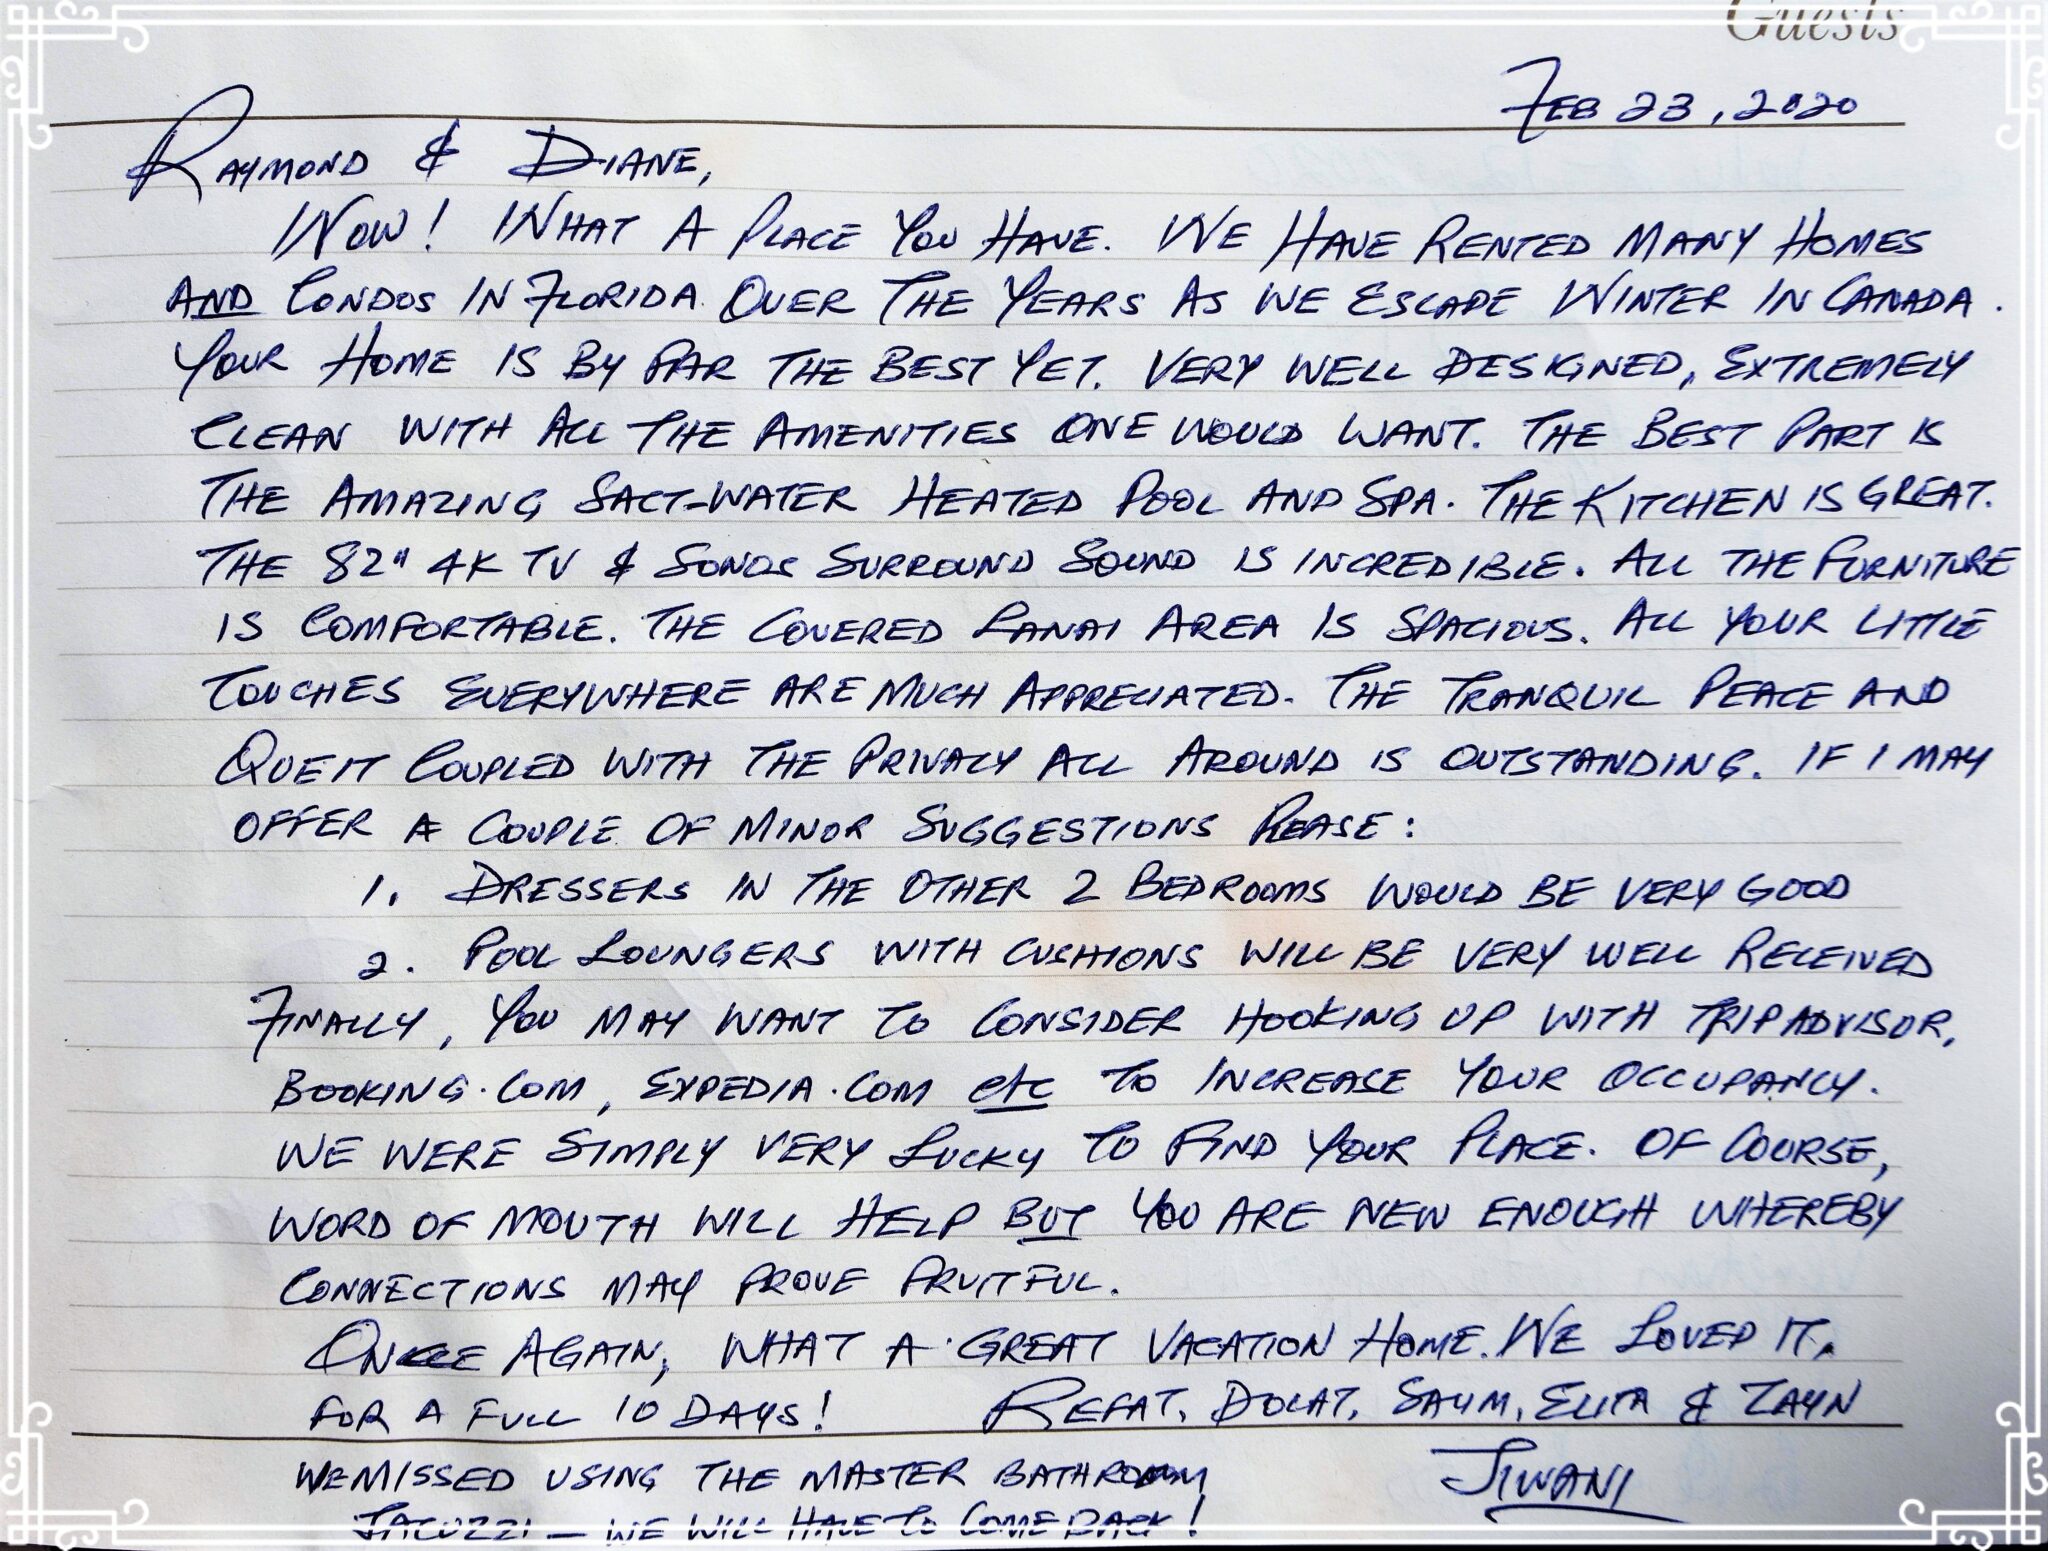 Guests
FEB 23, 2020
RAYMOND & DIANE,
WOW! WHAT A PLACE YOU HAVE. WE HAVE RENTED MANY HOMES
AND CONDOS IN FLORIDA OVER THE YEARS AS WE ESCAPE WINTER IN CANADA.
YOUR HOME IS BY FAR THE BEST YET. VERY WELL DESIGNED, EXTREMELY
CLEAN WITH ALL THE AMENITIES ONE WOULD WANT. THE BEST PART IS
THE AMAZING SALT-WATER HEATED POOL AND SPA. THE KITCHEN IS GREAT.
THE 82" 4K TV & SONOS SURROUND SOUND IS INCREDIBLE. ALL THE FURNITURE
IS COMFORTABLE. THE COVERED LANAI AREA IS SPACIOUS. ALL YOUR LITTLE
TOUCHES EVERYWHERE ARE MUCH APPRECIATED. THE TRANQUIL PEACE AND
QUEIT COUPLED WITH THE PRIVACY ALL AROUND IS OUTSTANDING. IF I MAY
OFFER A COUPLE OF MINOR SUGGESTIONS PLEASE:
1. DRESSERS IN THE OTHER 2 BEDROOMS WOULD BE VERY GOOD
2. POOL LOUNGERS WITH CUSHIONS WILL BE VERY WELL RECEIVED
FINALLY, YOU MAY WANT TO CONSIDER HOOKING UP WITH TRIPADVISOR,
BOOKING.COM, EXPEDIA.COM etc TO INCREASE YOUR OCCUPANCY.
WE WERE SIMPLY VERY LUCKY TO FIND YOUR PLACE. OF COURSE,
WORD OF MOUTH WILL HELP BUT YOU ARE NEW ENOUGH WHEREBY
CONNECTIONS MAY PROVE FRUITFUL.
ONCE AGAIN, WHAT A GREAT VACATION HOME. WE LOVED IT,
FOR A FULL 10 DAYS! REFAT, DOLAT, SALIM, ELITA & ZAYN
WE MISSED USING THE MASTER BATHROOM JIWANI
JACUZZI – WE WILL HAVE TO COME BACK!